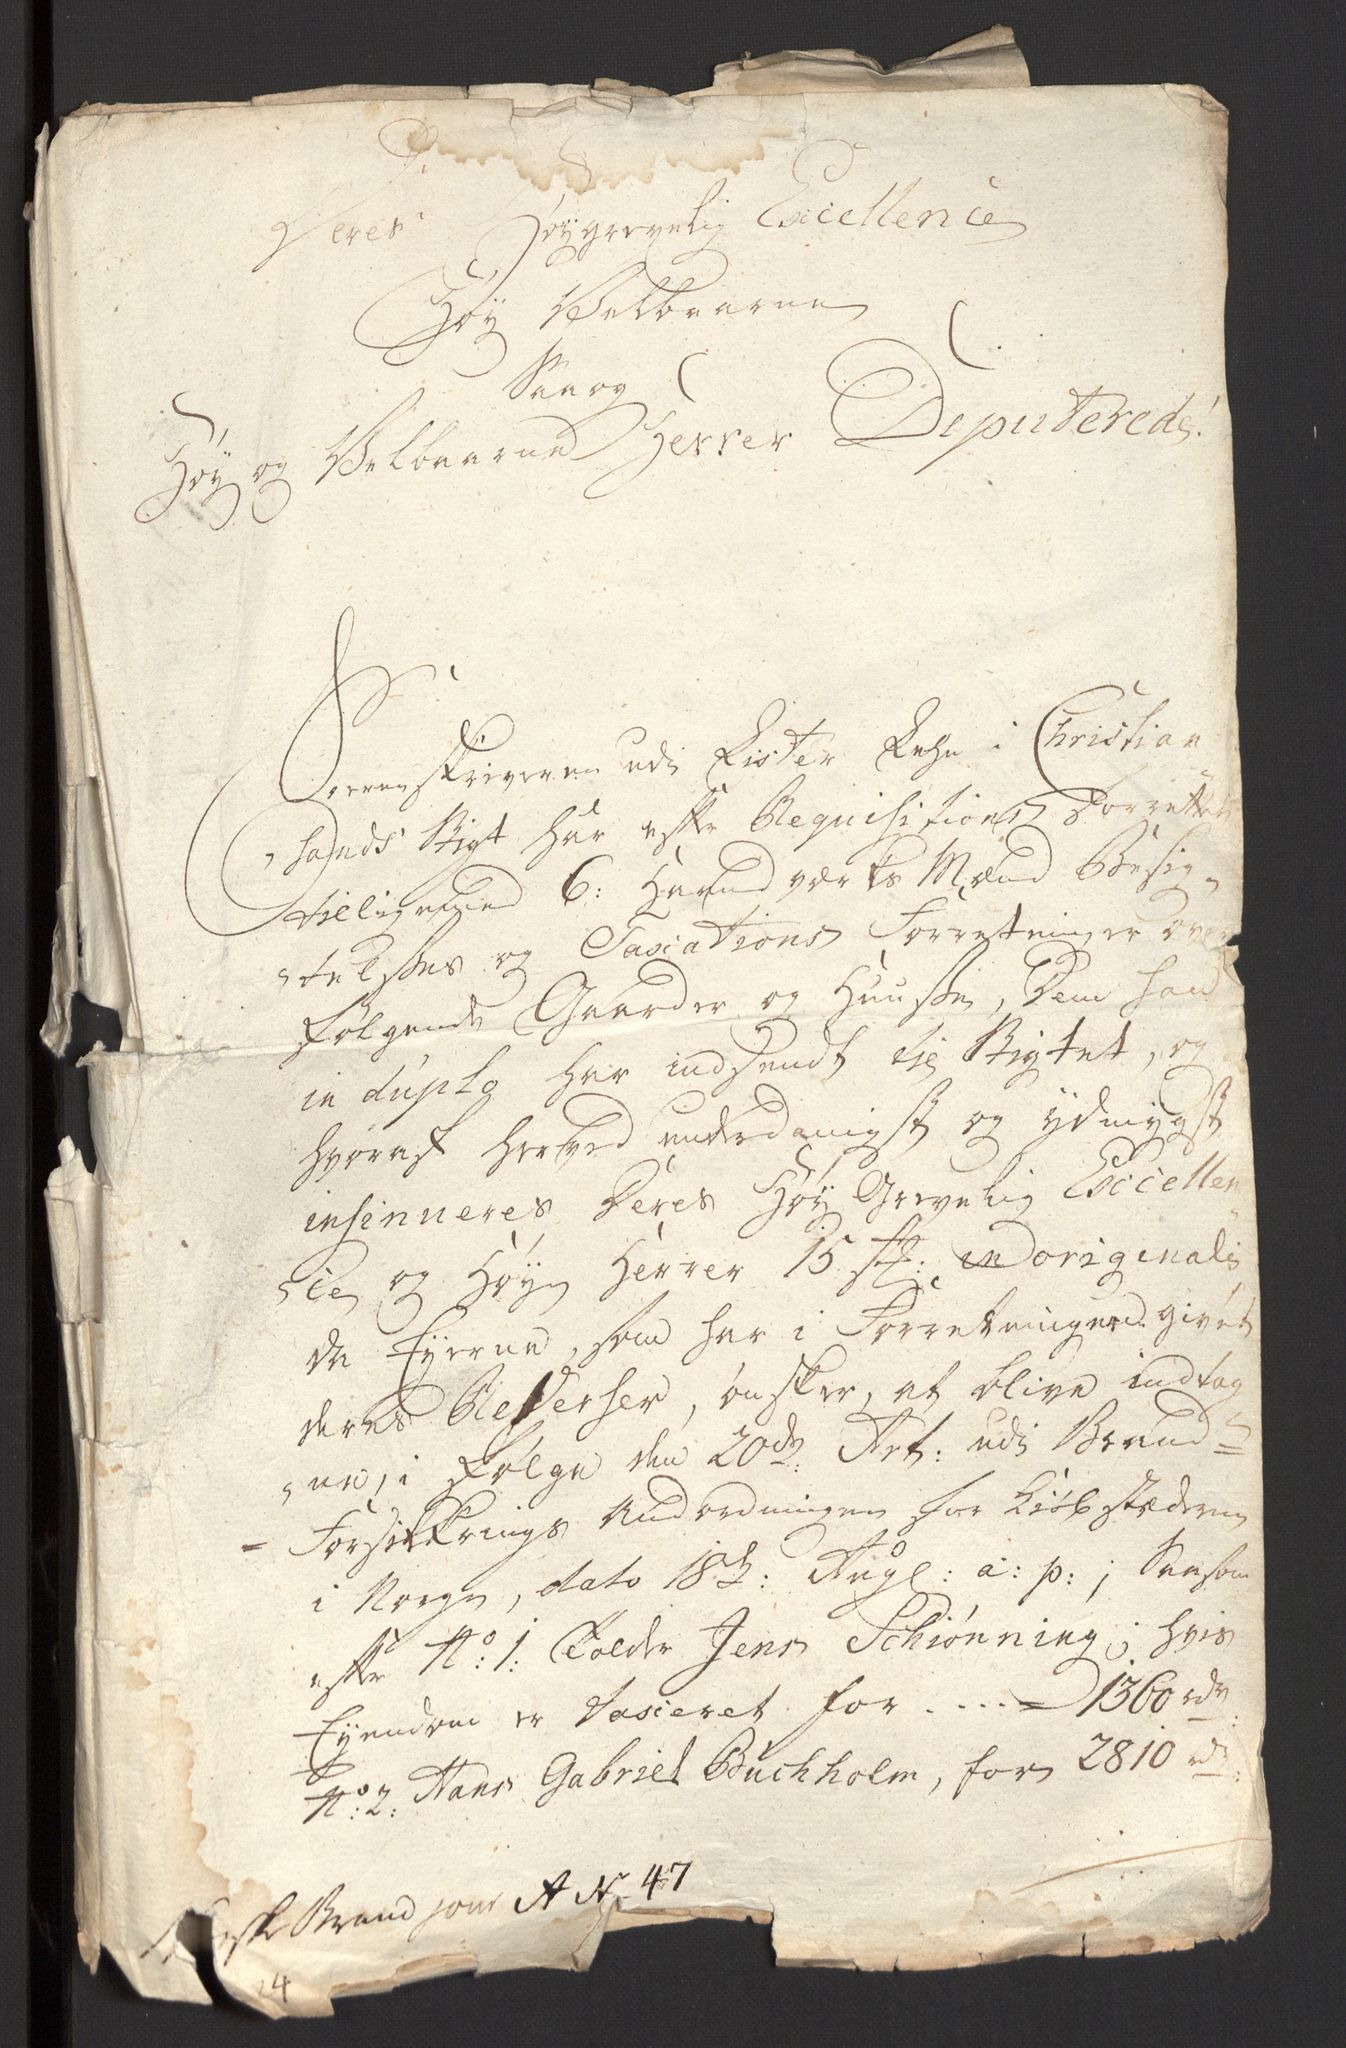 Deres Høygrevelig Excellence
Høy Velbaarne
Saa og
Høy og Velbaarne Herrer Deputerede!
Sorenskriveren udi Lister Lehn i Christian
sands Stigt har efter Requisitioner forrettet
tilligemed 6: Haandværks Mænd Besig-
telses og Taxations Forretninger over
følgende Gaarder og Huuse, dem hand
in duplo har indsendt til Stigtet, og
hvoraf herved underdanigst og ydmygst
insinueres Deres Høy Grevelig Excellen
ce og Høye Herrer 15 st: in originali
da Eyerne, som har i Forretningerne givet
deres Reverser, ønsker, at blive indtag
ne, i Følge den 20de Art: udi Brand=
Forsikkrings Anordningen for Kiøbstæderne
i Norge, dato 18de: Aug: a: p: ; Saasom
efter No: 1: Tolder Jens Schiønning; hvis
Eyendom er taxeret for .... 1360 rdr
No: 2: Hans Gabriel Buchholm, for 2810 rd:
Brand jour A No 47
4